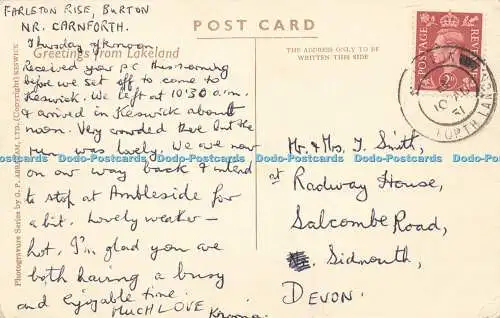 FARLSTON RISE, BURTON
NR. CARNFORTH.
Thursday afternoon
Greetings from Lakeland
Received your p.c this morning
before we set off to come to
Keswick. We left at 10'30 a.m.
& arrived in Keswick about
noon. Very crowded there but the
run was lovely. We are now
on our way back & intend
to stop at Ambleside for
a bit. Lovely weather –
hot. I'm glad you are
both having a busy
and enjoyable time.
MUCH LOVE
Photogravure Series by G. P. ABRAHAM, LTD. (Copyright) KESWICK
POST CARD
THE ADDRESS ONLY TO BE
WRITTEN THIS SIDE
POSTAGE
REVENUE
Mr. & Mrs. T. Smith,
at Radway House,
Salcombe Road,
Sidmouth,
DEVON.
Docutopia-Postcards.com